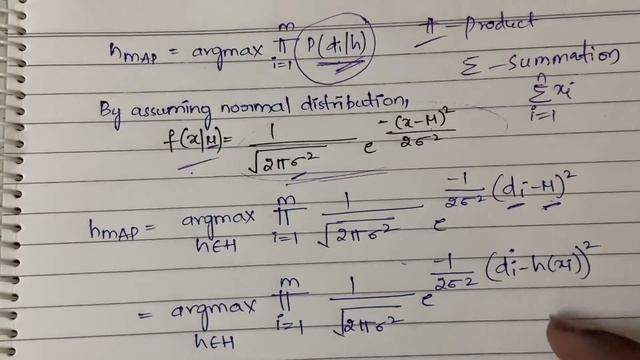 h_MAP = argmax m Π i=1 P(di|h)
Π - Product
Σ - Summation
n Σ i=1 xi
By assuming normal distribution,
f(x|μ) = 1 / √2πσ² e -(x-μ)² / 2σ²
h_MAP = argmax h∈H m Π i=1 1 / √2πσ² e -1 / 2σ² (di-μ)²
= argmax h∈H m Π i=1 1 / √2πσ² e -1 / 2σ² (di-h(xi))²